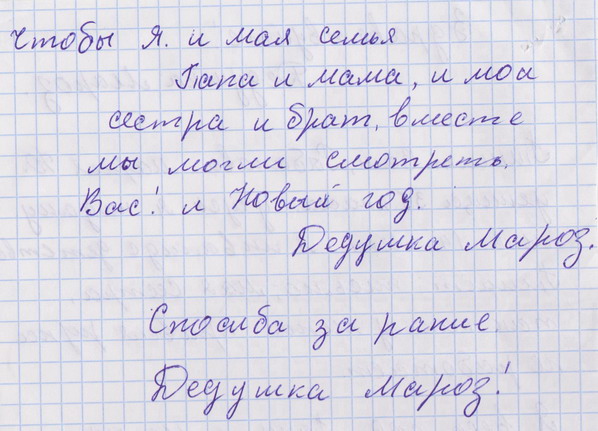 чтобы я. и мая семья
Папа и мама, и мои
сестра и брат, вместе
мы могли смотреть.
Вас! и Новый год.
Дедушка Мароз.
Спосиба за рание
Дедушка Мароз!